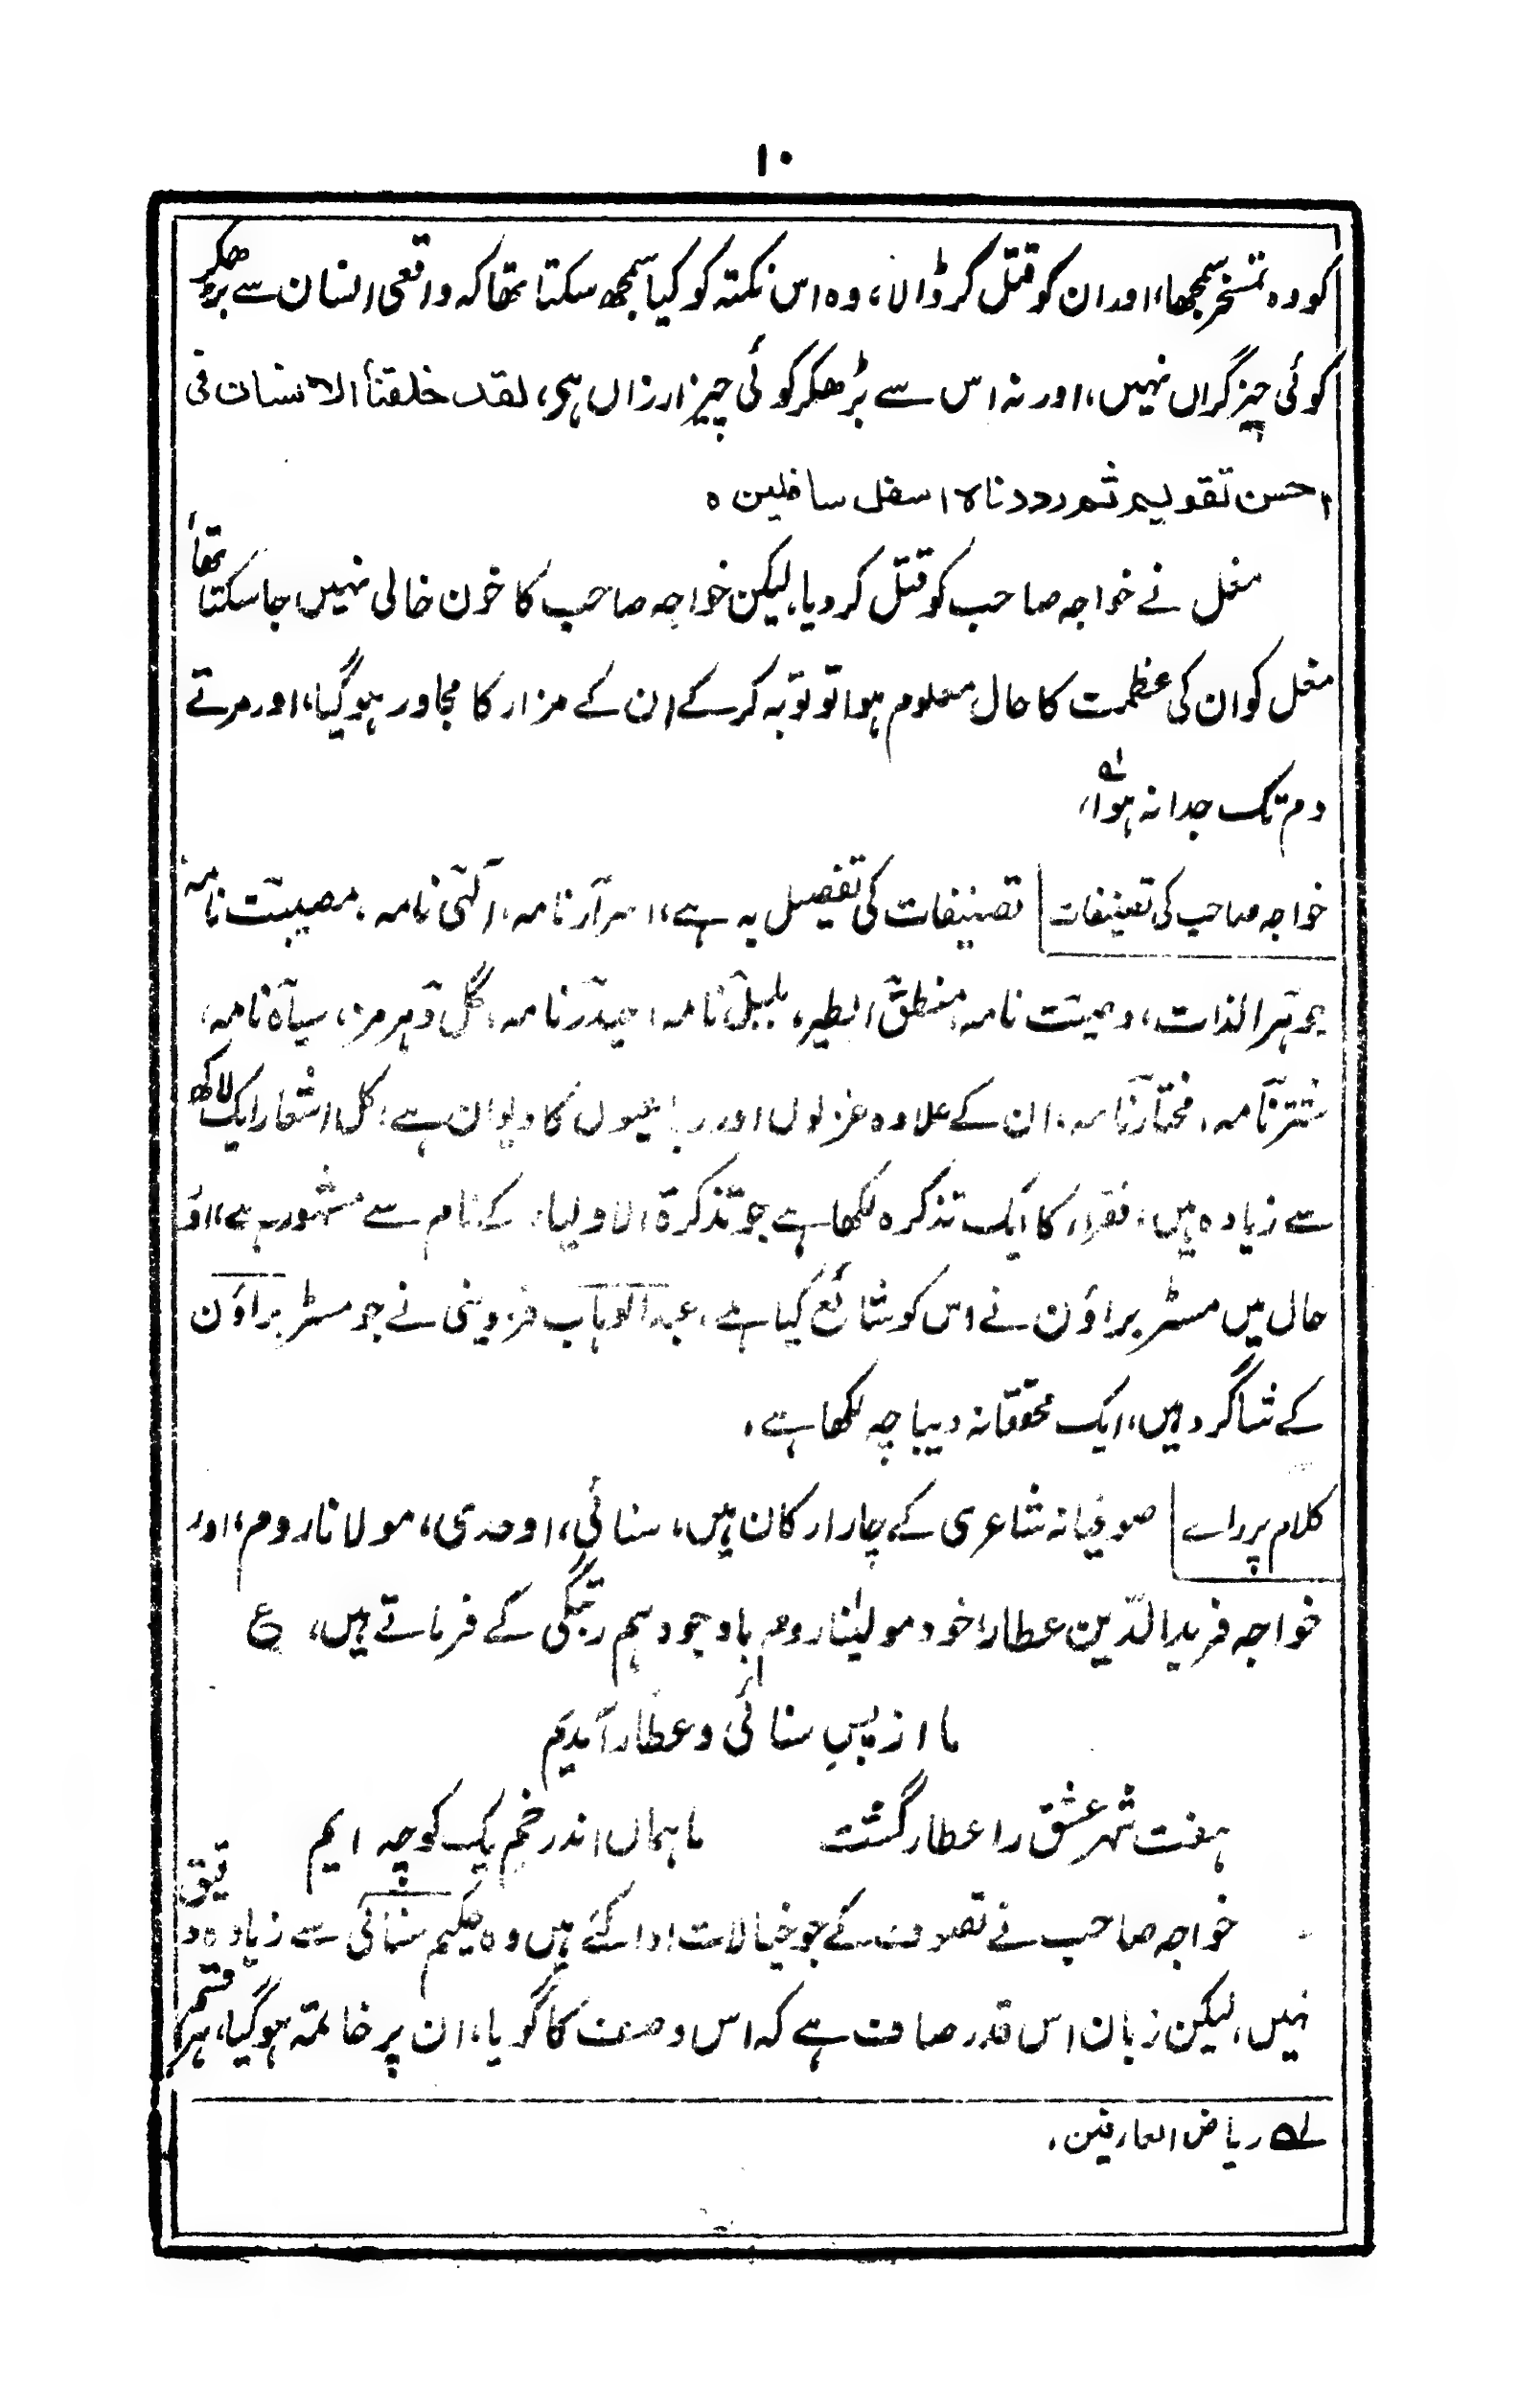 ۱۰
کو وہ تمسخر سمجھا، اور ان کو قتل کر ڈالا، وہ اس نکتہ کو کیا سمجھ سکتا تھا کہ واقعی انسان سے بڑھکر
کوئی چیز گراں نہیں، اور نہ اس سے بڑھکر کوئی چیز ارزاں ہی، لقد خلقنا الانسان فی
احسن تقویم ثم رددناہ اسفل سافلین ہ
مغل نے خواجہ صاحب کو قتل کر دیا، لیکن خواجہ صاحب کا خون خالی نہیں جا سکتا تھا
مغل کو ان کی عظمت کا حال معلوم ہوا تو توبہ کر کے ان کے مزار کا مجاور ہو گیا، اور مرتے
دم تک جدا نہ ہوا، لہ
خواجہ صاحب کی تصنیفات تصنیفات کی تفصیل یہ ہے، اسرار نامہ، الٰہی نامہ، مصیبت نامہ
جوہر الذات، وصیت نامہ، منطق الطیر، بلبل نامہ، حیدر نامہ، گل و ہرمز، سیاہ نامہ،
شتر نامہ، مختار نامہ، ان کے علاوہ غزلوں اور رباعیوں کا دیوان ہے، کل اشعار ایک لاکھ
سے زیادہ ہیں، فقرا، کا ایک تذکرہ لکھا ہے جو تذکرۃ الاولیا، کے نام سے مشہور ہے، اور
حال میں مسٹر براؤن نے اس کو شائع کیا ہے، عبد الوہاب قزوینی نے جو مسٹر براؤن
کے شاگرد ہیں، ایک محققانہ دیباچہ لکھا ہے،
کلام پر راے صوفیانہ شاعری کے چار ارکان ہیں، سنائی، اوحدی، مولانا روم، اور
خواجہ فرید الدین عطار، خود مولینا روم باوجود ہم رتبگی کے فرماتے ہیں، ع
ما از پس سنائی و عطار آمدیم
ہفت شہر عشق را عطار گشت ما ہماں اندر خم یک کوچہ ایم
خواجہ صاحب نے تصوف کے جو خیالات ادا کئے ہیں وہ حکیم سنائی سے زیادہ دقیق
نہیں، لیکن زبان اس قدر صاف ہے کہ اس وصف کا گویا، ان پر خاتمہ ہو گیا، ہر قسم
لہ ریاض العارفین،